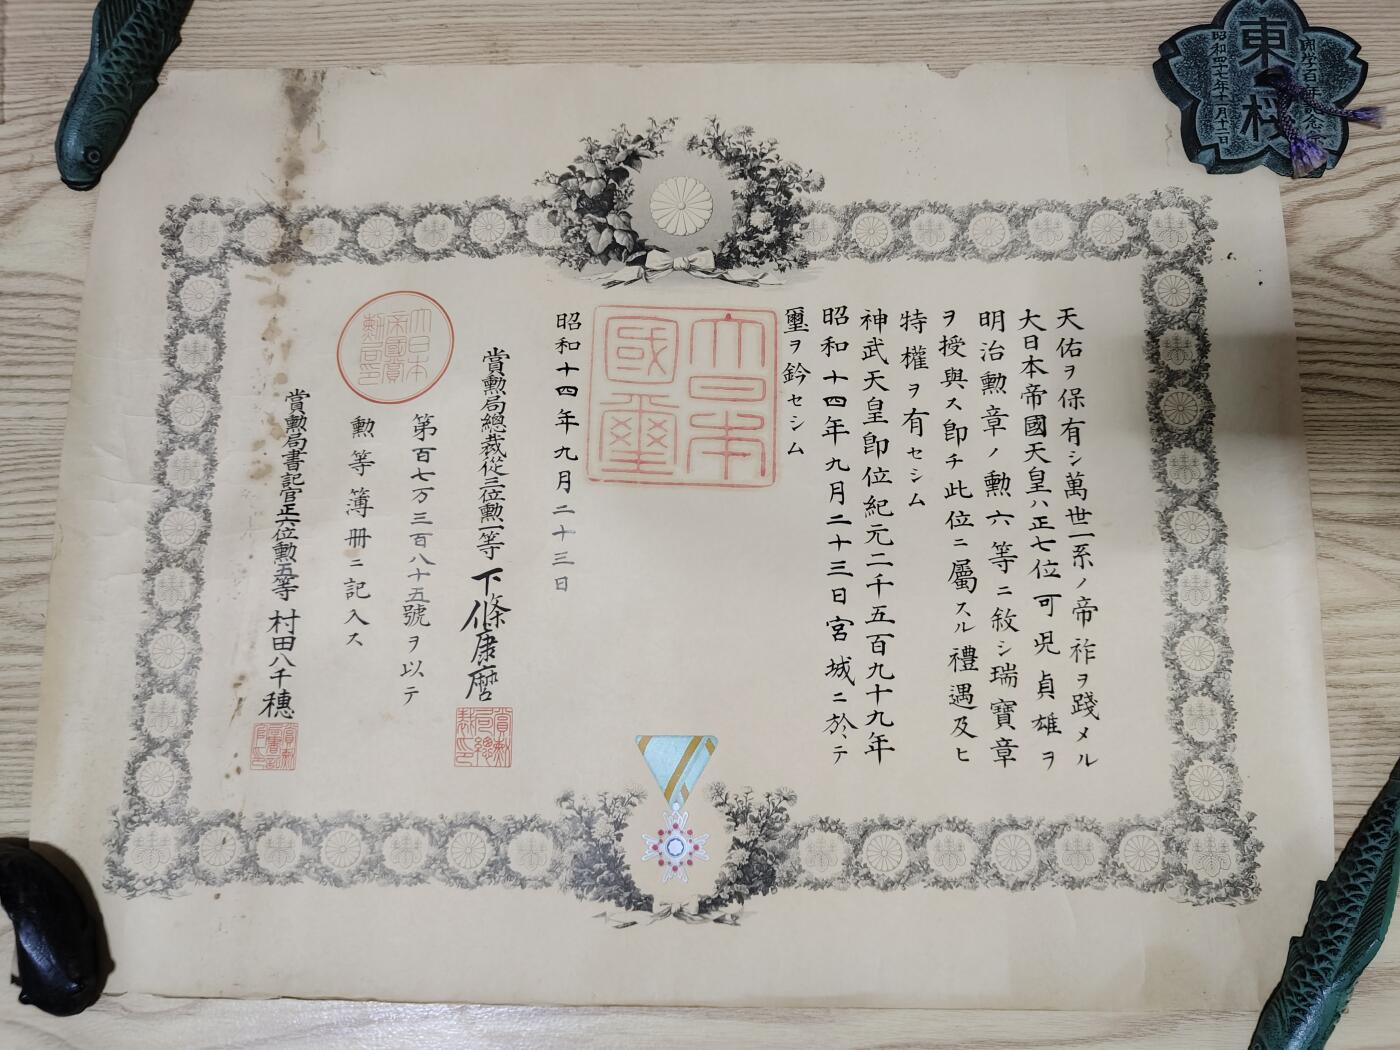 天佑ヲ保有シ萬世一系ノ帝祚ヲ踐メル
大日本帝國天皇ハ正七位可児貞雄ヲ
明治勲章ノ勲六等ニ敘シ瑞寶章
ヲ授與ス即チ此位ニ屬スル禮遇及ヒ
特權ヲ有セシム
神武天皇即位紀元二千五百九十九年
昭和十四年九月二十三日宮城ニ於テ
璽ヲ鈐セシム
大日本
國璽
昭和十四年九月二十三日
賞勲局總裁從三位勲一等 下條康麿
賞勲局總裁印
第百七万三百八十五號ヲ以テ
勲等簿册ニ記入ス
大日本帝國賞勲局印
賞勲局書記官正六位勲五等 村田八千穗
東
桜
昭和四十七年十一月十二日